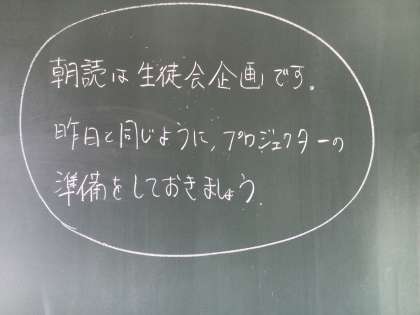 朝読は生徒会企画です。
昨日と同じように、プロジェクターの
準備をしておきましょう。